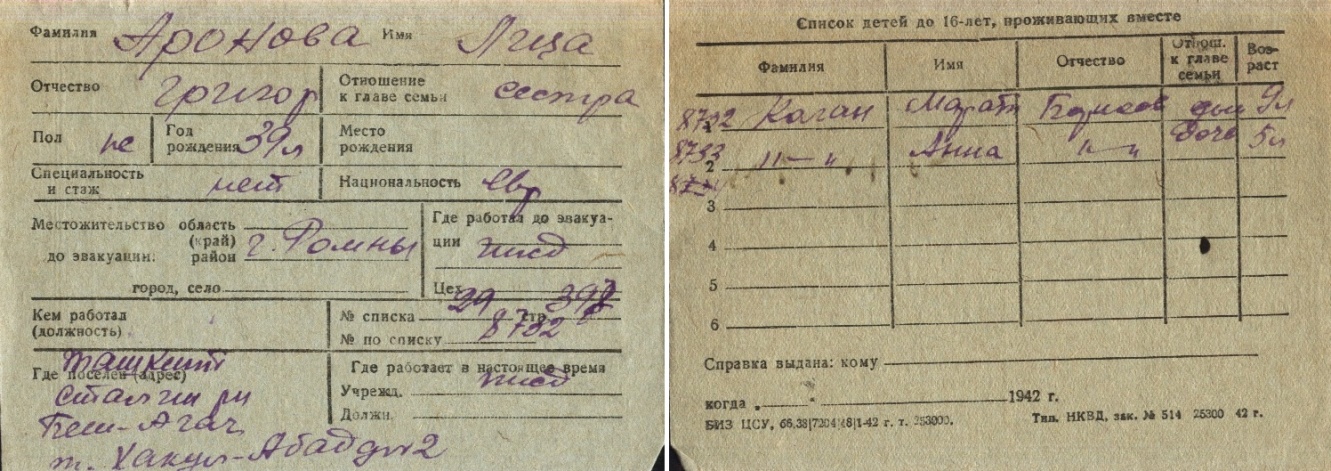 Фамилия Аронова Имя Лиза
Отчество Григор Отношение к главе семьи сестра
Пол Год рождения 39 л Место рождения
Специальность и стаж нет Национальность евр
Местожительство до эвакуации: область (край) район г. Ромны
город, село
Где работал до эвакуации ижд
Цех
Кем работал (должность)
№ списка 29 стр. 397
№ по списку 8732
Где поселен (адрес) Ташкент
Сталин рн
Беш-Агач
Где работает в настоящее время
Учрежд. ижд
Должн.
Список детей до 16-лет, проживающих вместе
Фамилия Имя Отчество Отнош. к главе семьи Возраст
Каган Марат Борисов сын 9 л
8733 2 и — и Анна и — и дочь 5 л
3
4
5
6
Справка выдана: кому
когда 1942 г.
БИЗ ЦСУ, Тип. НКВД, зак. № 514 25300 42 г.